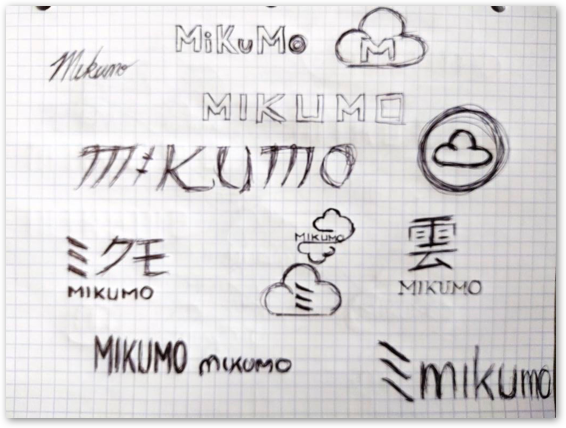 MiKuMo
M
Mikumo
MIKUMO
miKUMO
ミクモ
MIKUMO
MIKUMO
ミ
雲
MIKUMO
MIKUMO
mikumo
ミmikumo